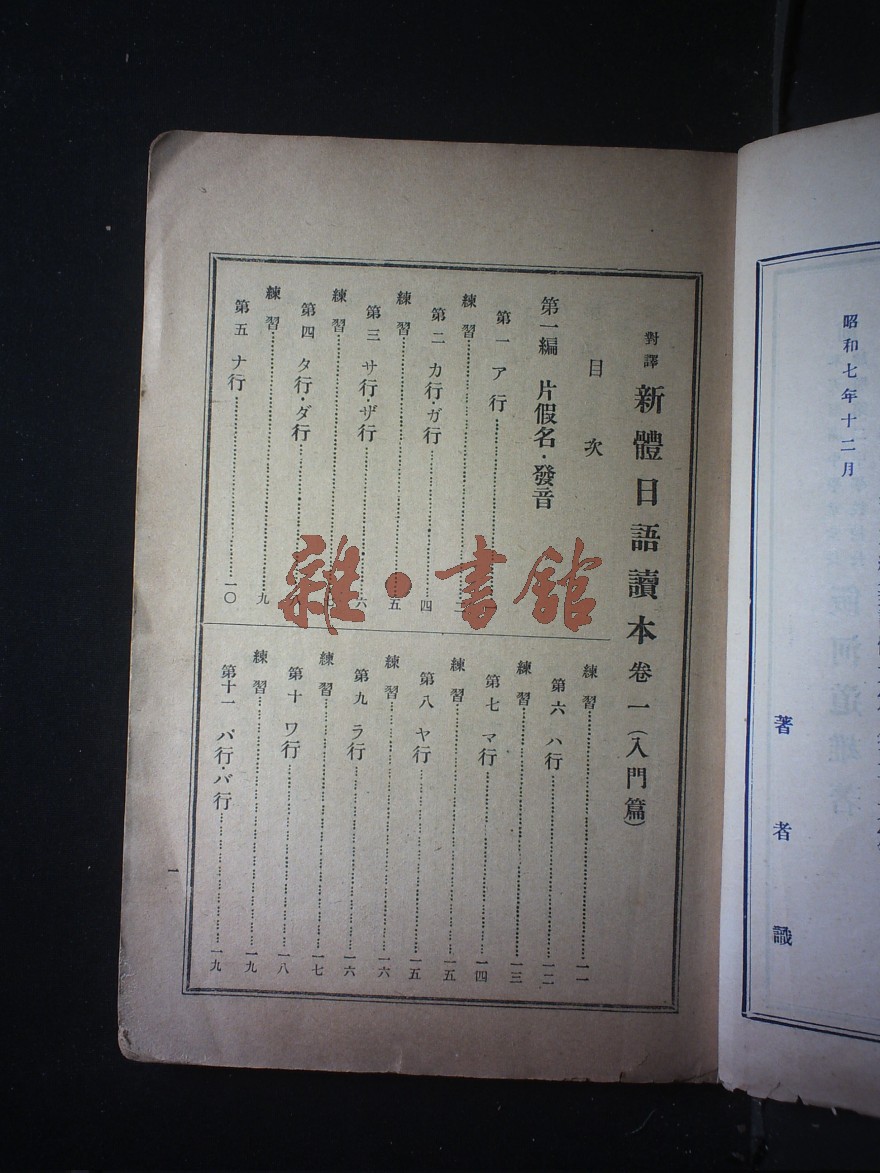 昭和七年十二月
著者識
對譯 新體日語讀本卷一(入門篇)
目次
第一編 片假名・發音
第一 ア行
練習
第二 カ行・ガ行 四
練習 五
第三 サ行・ザ行 六
練習
第四 タ行・ダ行
練習 九
第五 ナ行 一〇
練習 一一
第六 ハ行 一二
練習 一三
第七 マ行 一四
練習 一五
第八 ヤ行 一五
練習 一六
第九 ラ行 一六
練習 一七
第十 ワ行 一八
練習 一九
第十一 パ行・バ行 一九
一
雜・書館